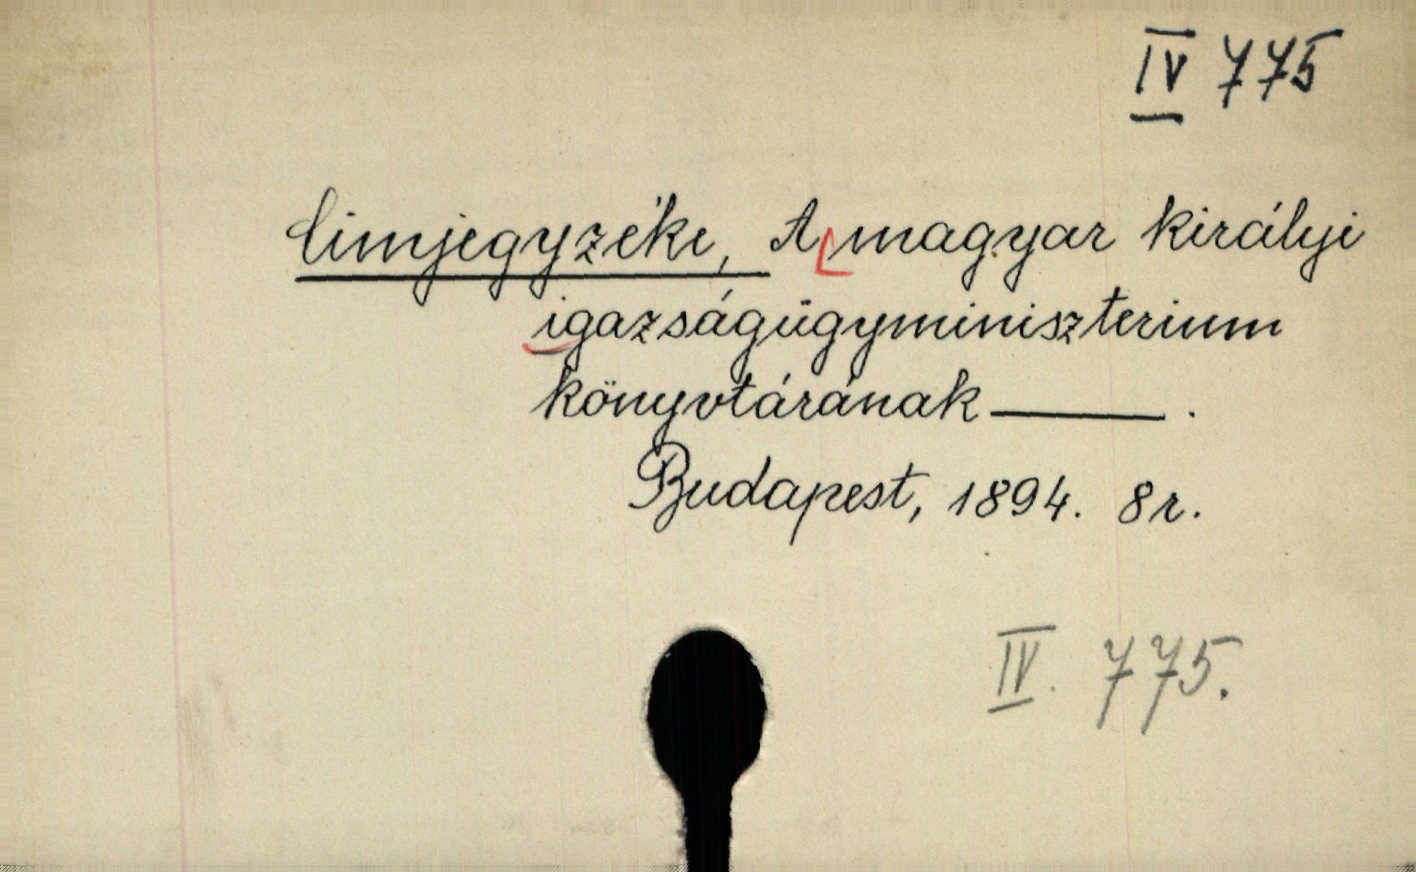 IV 775
Cimjegyzéke, A magyar királyi
igazságügyminiszterium
könyvtárának ——— .
Budapest, 1894. 8r.
IV. 775.